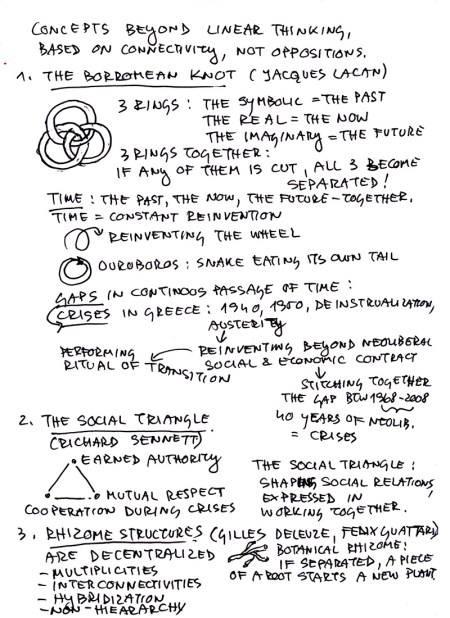 CONCEPTS BEYOND LINEAR THINKING,
BASED ON CONNECTIVITY, NOT OPPOSITIONS.
1. THE BORROMEAN KNOT (JACQUES LACAN)
3 RINGS: THE SYMBOLIC = THE PAST
THE REAL = THE NOW
THE IMAGINARY = THE FUTURE
3 RINGS TOGETHER:
IF ANY OF THEM IS CUT, ALL 3 BECOME
SEPARATED!
TIME: THE PAST, THE NOW, THE FUTURE - TOGETHER.
TIME = CONSTANT REINVENTION
REINVENTING THE WHEEL
OUROBOROS: SNAKE EATING ITS OWN TAIL
GAPS IN CONTINOUS PASSAGE OF TIME:
CRISES IN GREECE: 1940, 1950, DEINSTRUALIZATION,
AUSTERITY
PERFORMING
RITUAL OF TRANSITION
REINVENTING BEYOND NEOLIBERAL
SOCIAL & ECONOMIC CONTRACT
STITCHING TOGETHER
THE GAP BTW 1968-2008
40 YEARS OF NEOLIB.
= CRISES
2. THE SOCIAL TRIANGLE
(RICHARD SENNETT)
EARNED AUTHORITY
MUTUAL RESPECT
COOPERATION DURING CRISES
THE SOCIAL TRIANGLE:
SHAPING SOCIAL RELATIONS
EXPRESSED IN
WORKING TOGETHER.
3. RHIZOME STRUCTURES (GILLES DELEUZE, FELIX GUATTARI)
ARE DECENTRALIZED
- MULTIPLICITIES
- INTERCONNECTIVITIES
- HYBRIDIZATION
- NON-HIEARARCHY
BOTANICAL RHIZOME:
IF SEPARATED, A PIECE
OF A ROOT STARTS A NEW PLANT